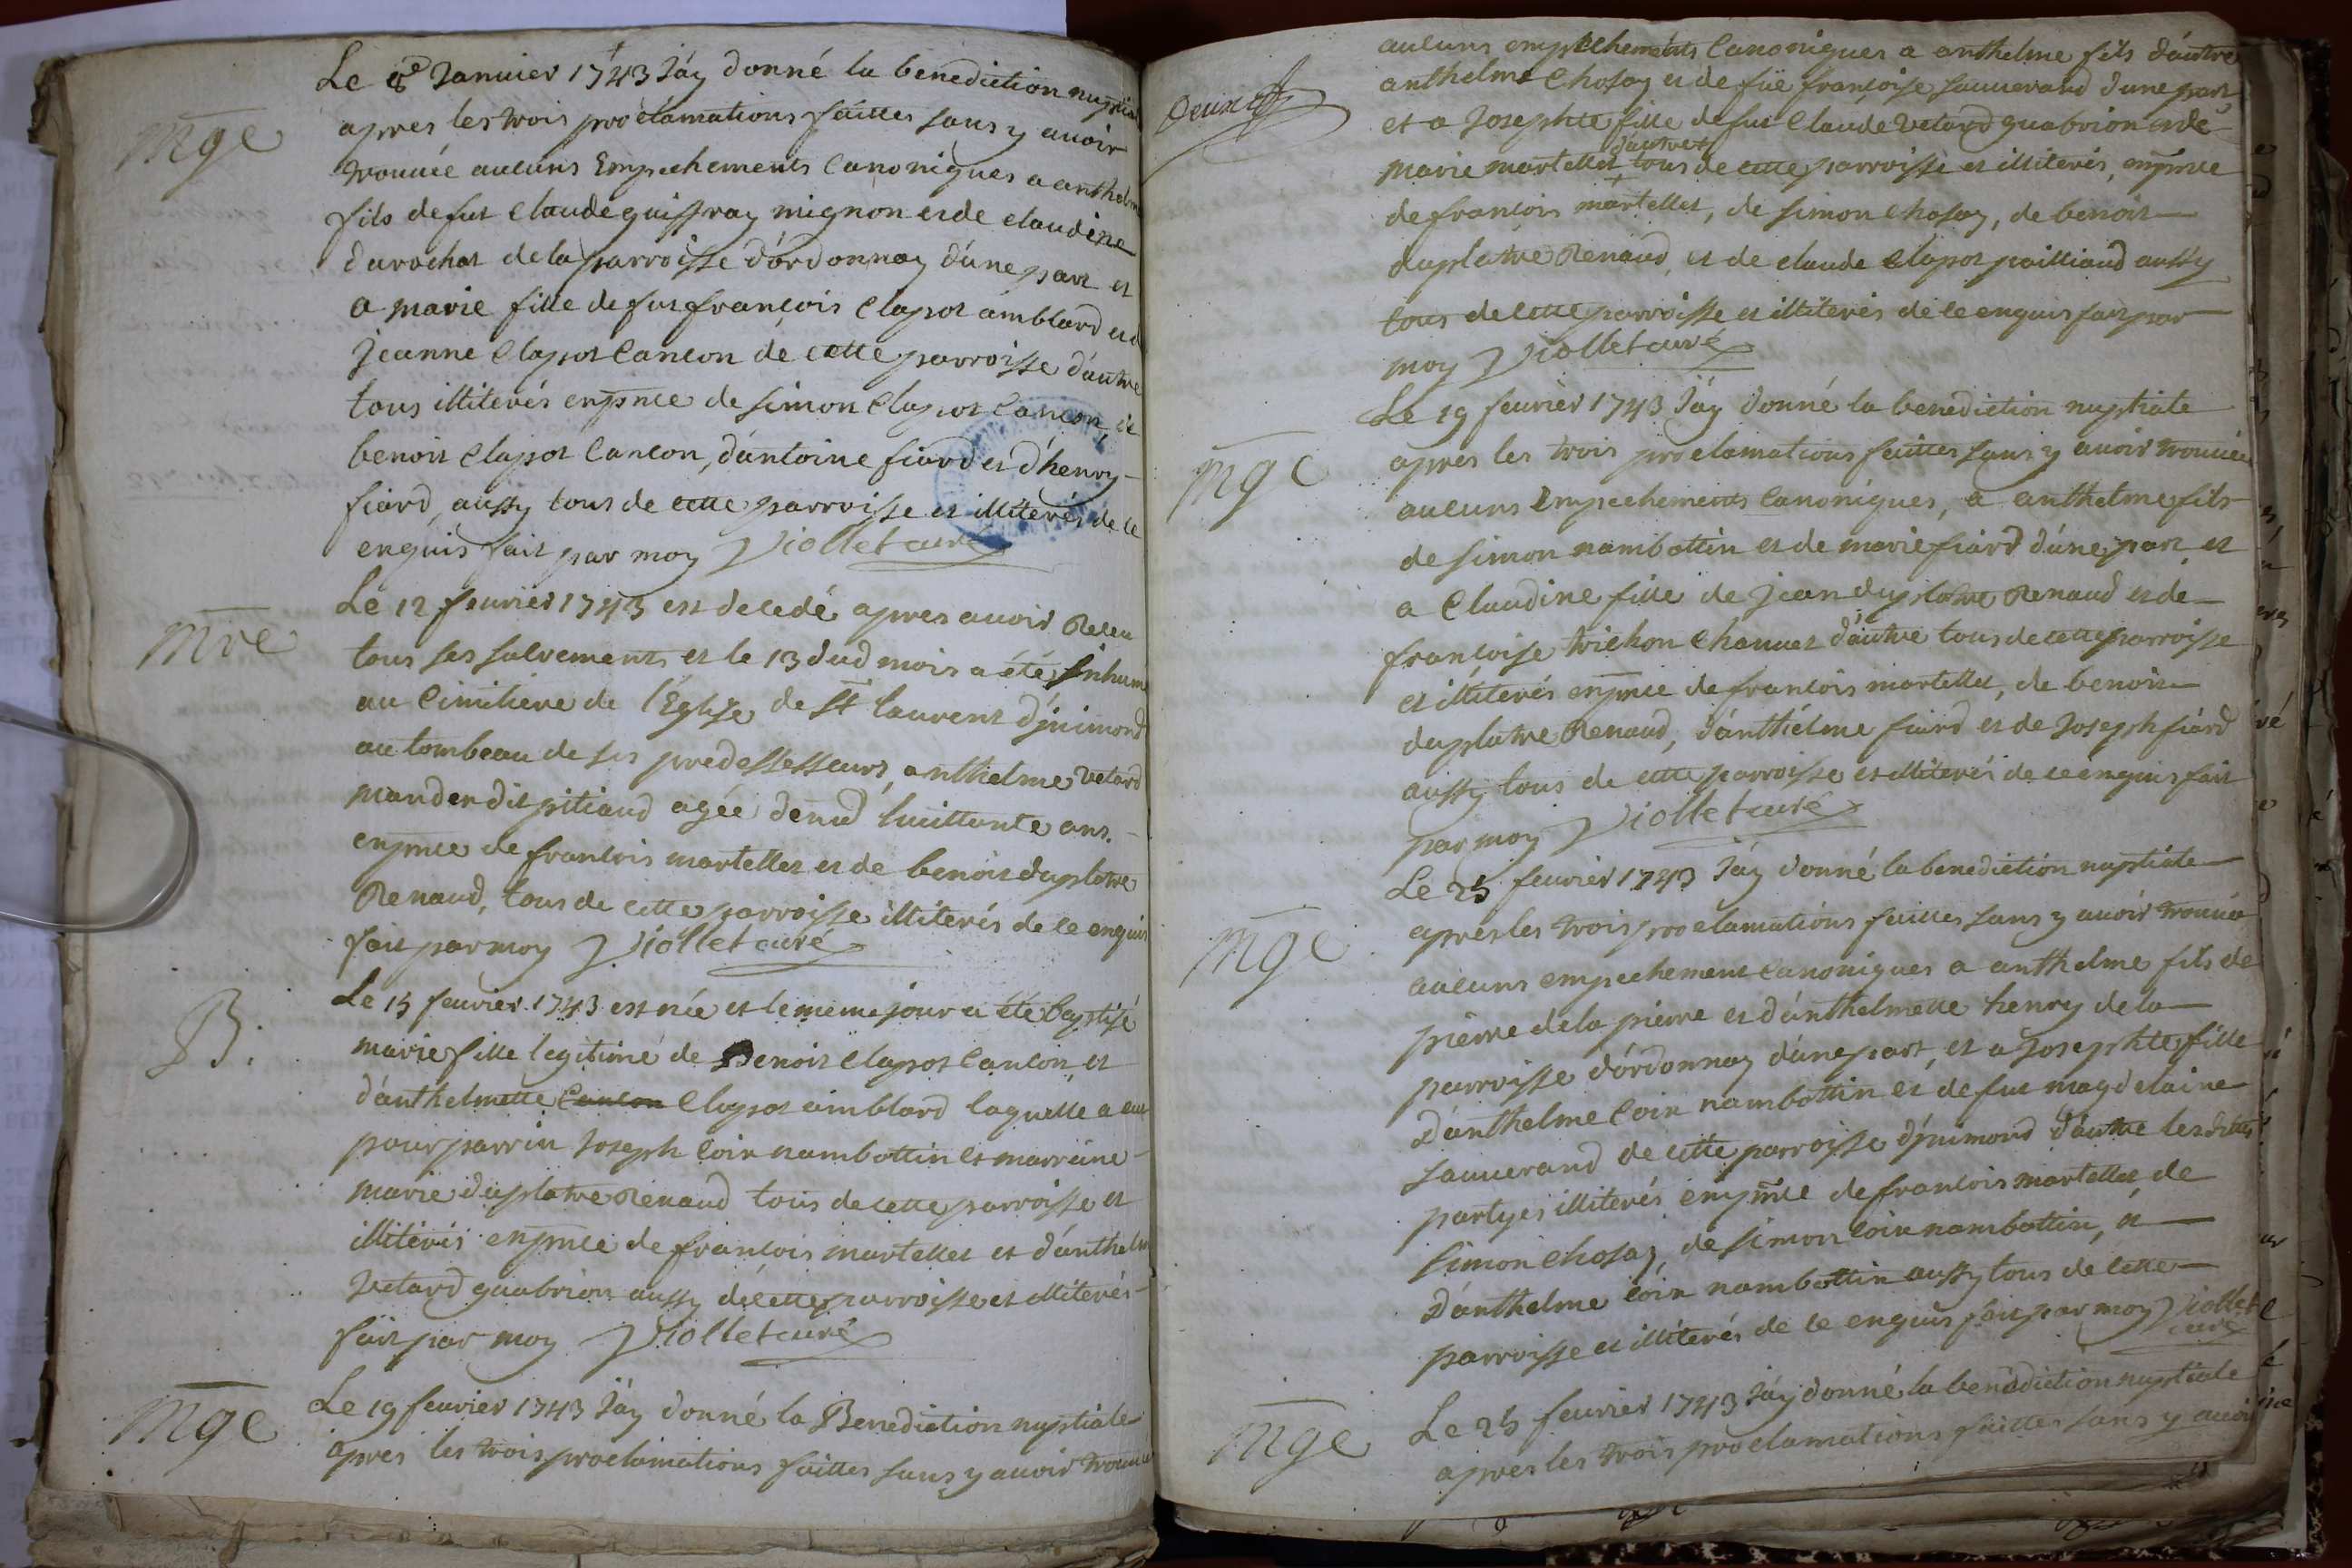 Mge
Le 8e Janvier 1743 Jáy donné la benediction nuptia
apres les trois proclamations faittes sans y avoir
trouuée aucuns Empechements Canoniques a anthelme
fils de fut Claude guiffray mignon et de claudine
durochat de la parroisse d'ordonnay d'úne part et
a marie fille de fut françois Clapot amblard et d
Jeanne Clapot Cancon de cette parroisse d'autre
tous illiterés enpnce de Simon Clapot Cancon, de
benoit Clapot Cancon, d'antoine fiard et d'henry
fiard, aussy tous de cette parroisse et illiterés de ce
enquis fait par moy Viollet curé
Mre
Le 12 feurier 1743 est decedé apres auoir Receu
tous ses salvements et le 13 dud mois a été Inhumé
au Cimitiere de l'Eglise de St laurent d'jnimond
au tombeau de ses predessesseurs, anthelme vetard
mander dit pitiaud agée denud huittante ans.
enpnce de francois martellet et de benoit duplatre
Renaud, tous de cette parroisse illiterés de ce enquis
fait par moy Viollet curé
B.
Le 15 feurier 1743 est née et le meme jour a été baptisé
marie fille legitime de Benoit Clapot Cancon et
d'anthelmette Cancon Clapot amblard laquelle a eut
pour parrin Joseph Coin nambottin et marraine
marie duplatre Renaud tous de cette parroisse et
illiterés enpnce de francois martellet et d'anthelm
Vetard quabrion aussy de cette parroisse et illiterés
fait par moy Viollet curé
Mge
Le 19 feurier 1743 Jáy donné la Benediction nuptiale
apres les trois proclamations faittes sans y auoir trouuée
aucuns empechements Canoniques a anthelme fils d'autre
anthelme Chosay et de füe françoise Sauuerand d'une part
et a Josephte fille de fut Claude Vetard quabrion et de
d'autre
marie martellet tous de cette parroisse et illiterés, enpnce
de francois martellet, de Simon Chosay, de benoit
duplatre Renaud, et de claude Clapot pailliaud aussy
tous de cette parroisse et illiterés de ce enquis fait par
moy Viollet curé
Mge
Le 19 feurier 1743 Jáy donné la benediction nuptiale
apres les trois proclamations faittes sans y auoir trouuée
aucuns Empechements Canoniques, a anthelme fils
de Simon nambottin et de marie fiard d'úne part, et
a Claudine fille de Jean duplatre Renaud et de
françoise trichon Chanuet d'autre tous de cette parroisse
et illiterés enpnce de francois martellet, de benoit
duplatre Renaud, d'anthelme fiard et de Joseph fiard
aussy tous de cette parroisse et illiterés de ce enquis fait
par moy Viollet curé
Mge
Le 25 feurier 1743 Jáy donné la benediction nuptiale
apres les trois proclamations faittes sans y auoir trouuée
aucuns empechement Canoniques a anthelme fils de
pierre dela pierre et d'anthelmette henry de la
parroisse d'ordonnay d'une part, et a Josephte fille
D'anthelme Coin nambottin et de fut magdelaine
Sauuerand de cette parroisse d'jnimond d'autre lesdittes
partyes illiterés enpnce de francois martellet, de
Simon Chosay, de Simon Coin nambottin, et
D'anthelme Coin nambottin aussy tous de cette
parroisse et illiterés de ce enquis fait par moy Viollet
curé
Mge
Le 25 feurier 1743 Jáy donné la benediction nuptiale
apres les trois proclamations faittes sans y auoir